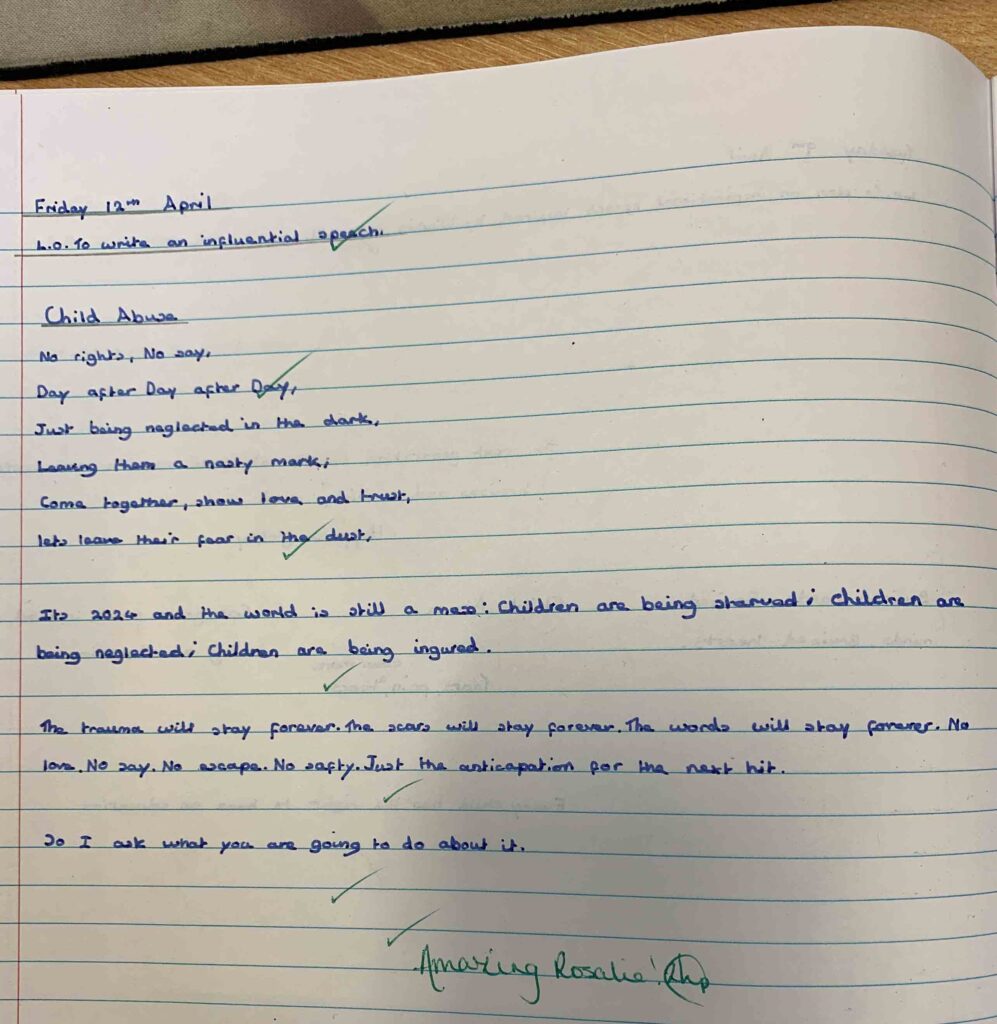 Friday 12th April
L.O. To write an influential speech.
Child Abuse
No rights, No say,
Day after Day after Day,
Just being neglected in the dark,
Leaving them a nasty mark;
Come together, show love and trust,
lets leave their fear in the dust,
Its 2024 and the world is still a mess: Children are being starved; children are
being neglected; Children are being ingured.
The trauma will stay forever. The scars will stay forever. The words will stay forever. No
love. No say. No escape. No safty. Just the anticapation for the next hit.
So I ask what you are going to do about it.
Amazing Rosalie!